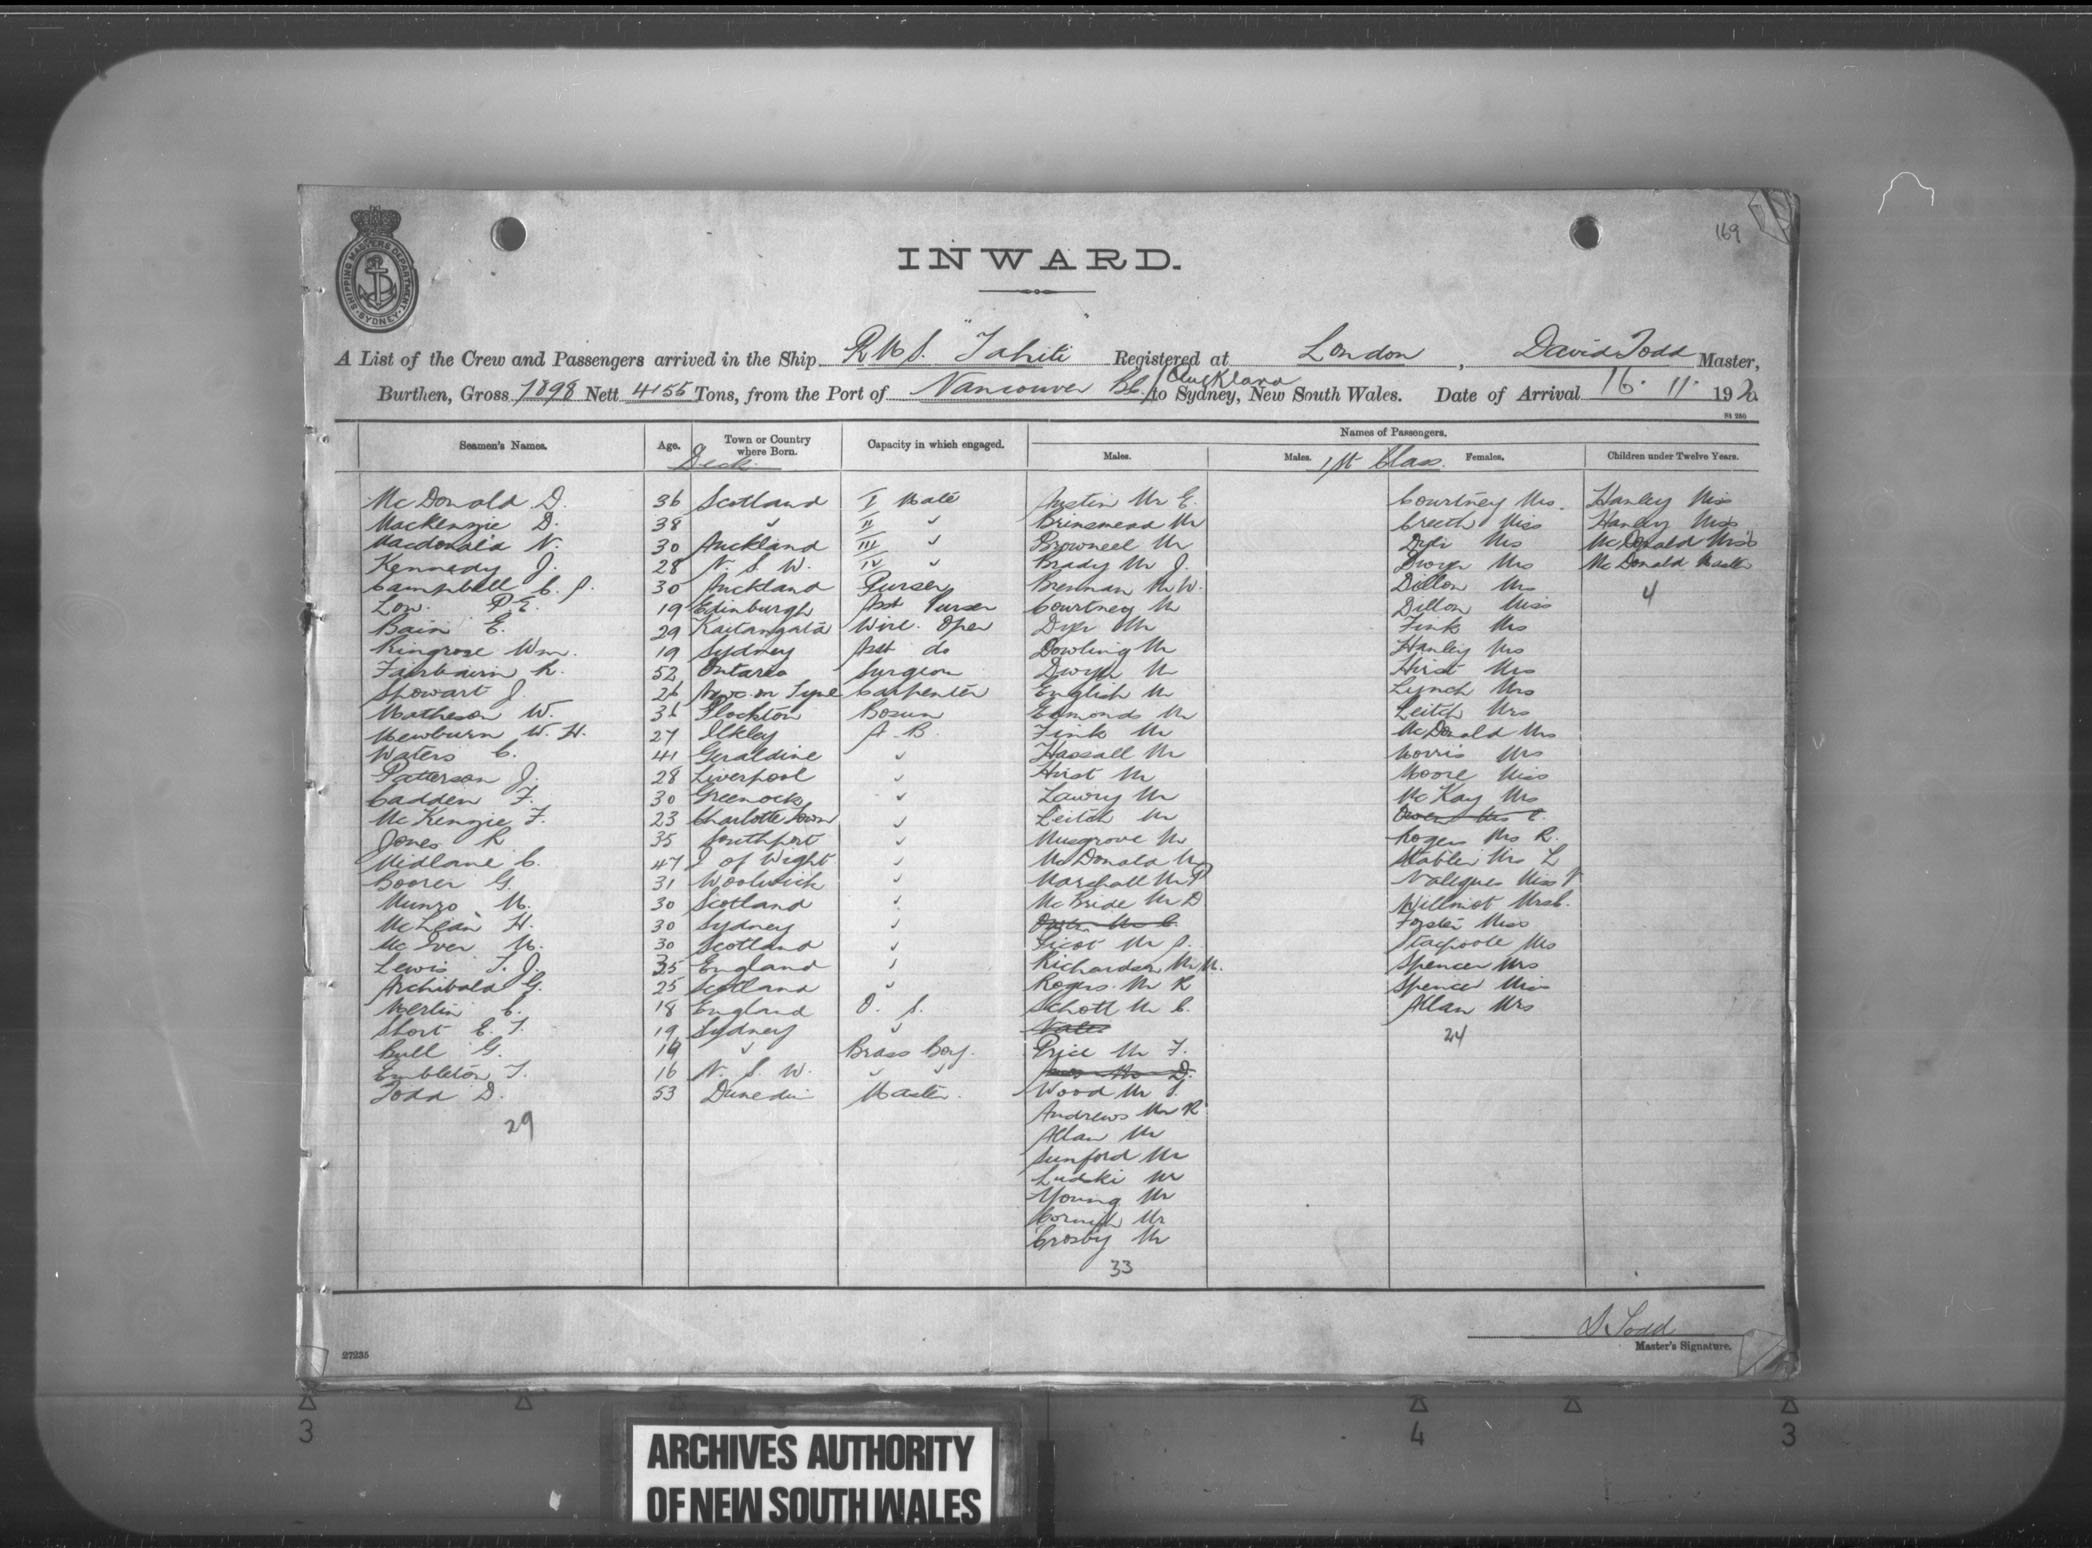 169
SHIPPING MASTERS DEPARTMENT SYDNEY
INWARD.
A List of the Crew and Passengers arrived in the Ship R M S. "Tahiti Registered at London, David Todd Master,
Burthen, Gross 7898 Nett 4155 Tons, from the Port of Vancouver B.C./Auckland to Sydney, New South Wales. Date of Arrival 16. 11. 192
St 280
Seamen's Names. Age. Town or Country where Born. Capacity in which engaged. Names of Passengers.
Males. Males. Females. Children under Twelve Years.
Deck 1st Class.
McDonald D. 36 Scotland I Mate Austin Mr E. Courtney Mrs. Hanley Miss
Mackenzie D. 38 " II " Brinsmead Mr Creeth Miss Hanley Miss
Macdonald N. 30 Auckland III " Mr Mrs McDonald Miss
Kennedy J. 28 N. S. W. IV " Brady Mr J. Dwyer Mrs McDonald Master
Campbell C. J. 30 Auckland Purser Brennan Mr W. Dillon Mrs 4
Low. P.E. 19 Edinburgh Asst Purser Courtney Mr Dillon Miss
Bain E. 29 Kaitangata Wirl. Oper Mr Fink Mrs
Ringrose Wm. 19 Sydney Asst do Dowling Mr Hanley Mrs
Fairbairn R. 52 Ontario Surgeon Dwyer Mr Hirst Mrs
Spowart J. 26 Newc. on Tyne Carpenter English Mr Lynch Mrs
Matheson W. 36 Plockton Bosun Edmonds Mr Leitch Mrs
Newburn W. H. 27 Ilkley A. B. Fink Mr McDonald Mrs
Waters C. 41 Geraldine " Hassall Mr Morris Mrs
Patterson J. 28 Liverpool " Hirst Mr Moore Miss
Cadden F. 30 Greenock " Lawry Mr McKay Mrs
McKenzie F. 23 Charlotte Town " Leitch Mr Owen Mrs C.
Jones R 35 Southport " Musgrove Mr Rogers Mrs R.
Midlane C. 47 I of Wight " McDonald Mr Stabler Mrs L
Boorer G. 31 Woolwich " Marshall Mr P Miss V
Munro M. 30 Scotland " McBride Mr D Willmot Mrs C.
McLean H. 30 Sydney " Foster Miss
McIver M. 30 Scotland " Picot Mr J. Stacpoole Mrs
Lewis T. J. 35 England " Richardson Mr M. Spencer Mrs
Archibald G. 25 Scotland " Rogers. Mr R Spencer Miss
Merlin C. 18 England O. S. Schott Mr C. Allan Mrs
Short E. T. 19 Sydney " 24
Bull G. 19 " Brass Boy. Price Mr F.
Embleton T. 16 N. S. W. " "
Todd D. 53 Dunedin Master. Wood Mr S.
29 Andrews Mr R
Allan Mr
Sunford Mr
Ludski Mr
Young Mr
Cornish Mr
Crosby Mr
33
D Todd
Master's Signature.
27235
3 4 3
ARCHIVES AUTHORITY
OF NEW SOUTH WALES